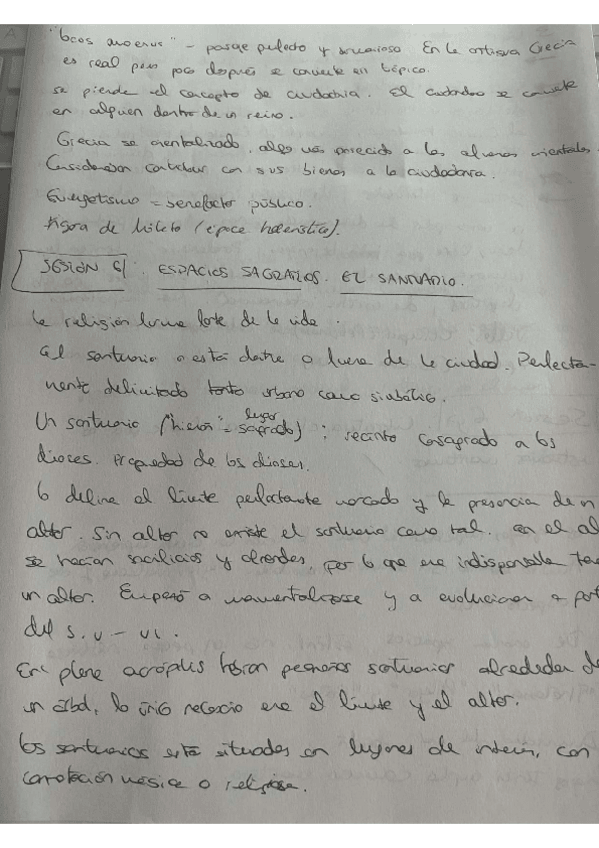 "locus amoenus" - paisaje perfecto y armonioso. En la antigua Grecia
es real pero poco después se convierte en tópico.
se pierde el concepto de ciudadanía. El ciudadano se convierte
en alguien dentro de un reino.
Grecia se orientalizado, algo más parecido a los orientales.
Consideraban contribuir con sus bienes a la ciudadanía.
Evergetismo = benefactor público.
Ágora de Mileto (época helenística).
SESIÓN 6/. ESPACIOS SAGRADOS. EL SANTUARIO.
La religión forma parte de la vida.
El santuario o está dentro o fuera de la ciudad. Perfecta-
mente delimitado tanto urbano como simbólico.
Un santuario ("hieron" = lugar sagrado), recinto consagrado a los
dioses. Propiedad de los dioses.
lo define el límite perfectamente marcado y la presencia de un
altar. Sin altar no existe el santuario como tal. en el al
se hacían sacrificios y ofrendas, por lo que era indispensable te
un altar. Empezó a monumentalizarse y a evolucionar a part
del s. V - VI.
En plena acrópolis había pequeños santuarios alrededor de
un árbol, lo único necesario era el límite y el altar.
Los santuarios está situados en lugares de interés, con
connotación mágica o religiosa.